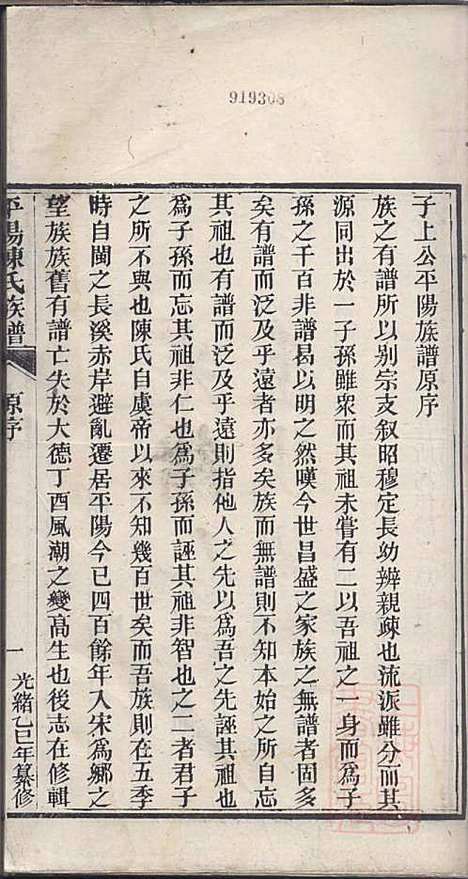 919308
子上公平陽族譜原序
族之有譜所以別宗支叙昭穆定長幼辨親疎也流派雖分而其
源同出於一子孫雖衆而其祖未嘗有二以吾祖之一身而爲子
孫之千百非譜曷以明之然嘆今世昌盛之家族之無譜者固多
矣有譜而泛及乎遠者亦多矣族而無譜則不知本始之所自忘
其祖也有譜而泛及乎遠則指他人之先以爲吾之先誣其祖也
爲子孫而忘其祖非仁也爲子孫而誣其祖非智也之二者君子
之所不與也陳氏自虞帝以來不知幾百世矣而吾族則在五季
時自閩之長溪赤岸避亂遷居平陽今已四百餘年入宋爲鄉之
望族族舊有譜亡失於大德丁酉風潮之變高生也後志在修輯
平陽陳氏族譜 原序 一 光緒乙巳年纂修